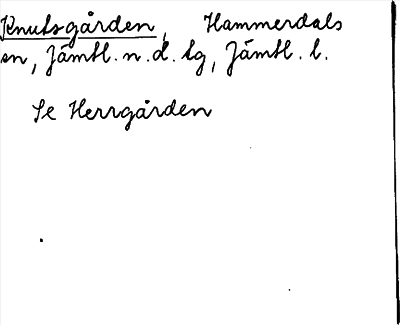 Knutsgården, Hammerdals
sn, Jämtl. n. d. lg, Jämtl. l.
Se Herrgården